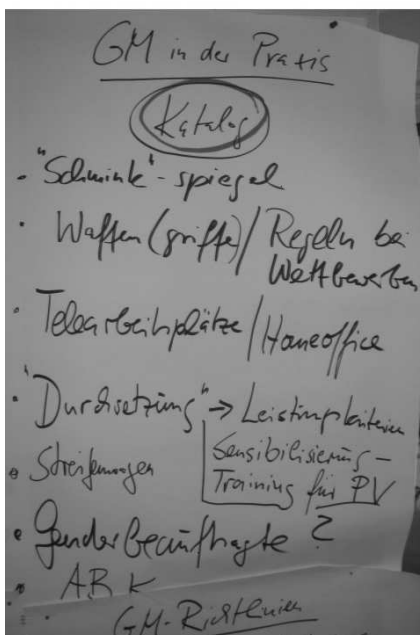 GM in der Praxis
Katalog
· "Schmink"-spiegel
· Waffen(griffe)/Regeln bei
Wettbewerben
· Telearbeitsplätze/Homeoffice
· "Durchsetzung" → Leistungskriterien
Sensibilisierung-
Training für PV
· Streifenwagen
· Genderbeauftragte?
· ABK
GM-Richtlinien